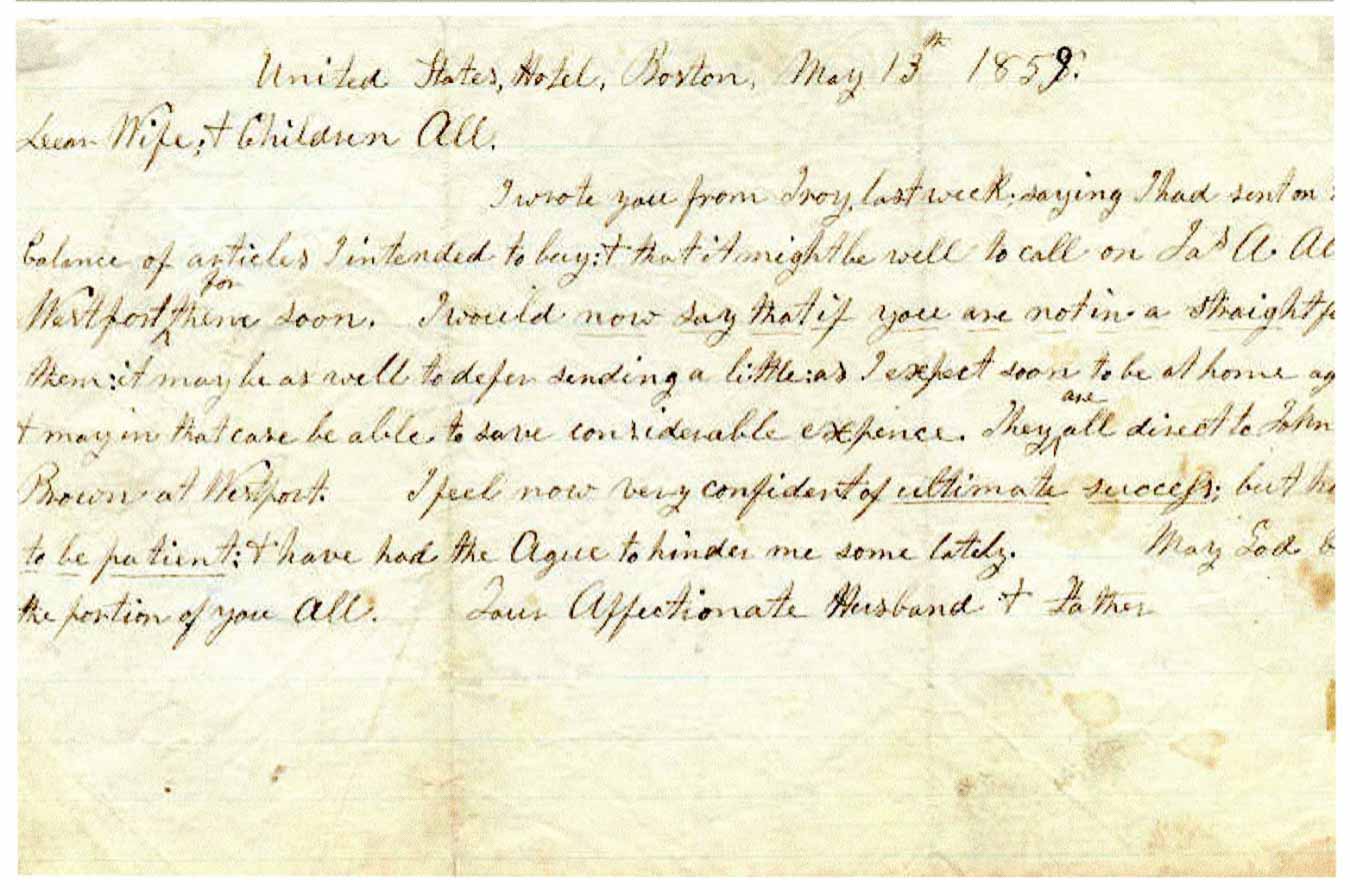 United States, Hotel, Boston, May 13th 1859.
Dear Wife; & Children All.
I wrote you from Troy, last week; saying I had sent on
balance of articles I intended to buy: & that it might be well to call on Jas A. Al
Westport for them soon. I would now say that if you are not in a straight f
them: it may be as well to defer sending a little: as I expect soon to be at home ag
& may in that case be able to save considerable expence. They are all direct to John
Brown at Westport. I feel now very confident of ultimate success; but ha
to be patient: & have had the Ague to hinder me some lately. May God b
the portion of you All. Your Affectionate Husband & Father